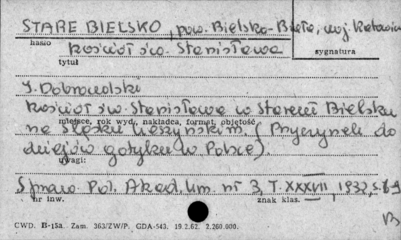 STARE BIELSKO, pow. Bielsko-Biała, woj. Katowice
hasło
Kościół św. Stanisława
sygnatura
tytuł
T. Dobrowolski
Kościół św. Stanisława w Starem Bielsku
miejsce, rok wyd., nakładca, format, objętość
na Śląsku Cieszyńskim. (Przyczynek do
dziejów gotyku w Polsce).
uwagi:
Spraw. Pol. Akad. Um. nr 3, T. XXXVII, 1932, s. 6-9
nr inw.
znak klas.
B
CWD. B-15a. Zam. 363/ZW/P. GDA-543. 19.2.62. 2.260.000.